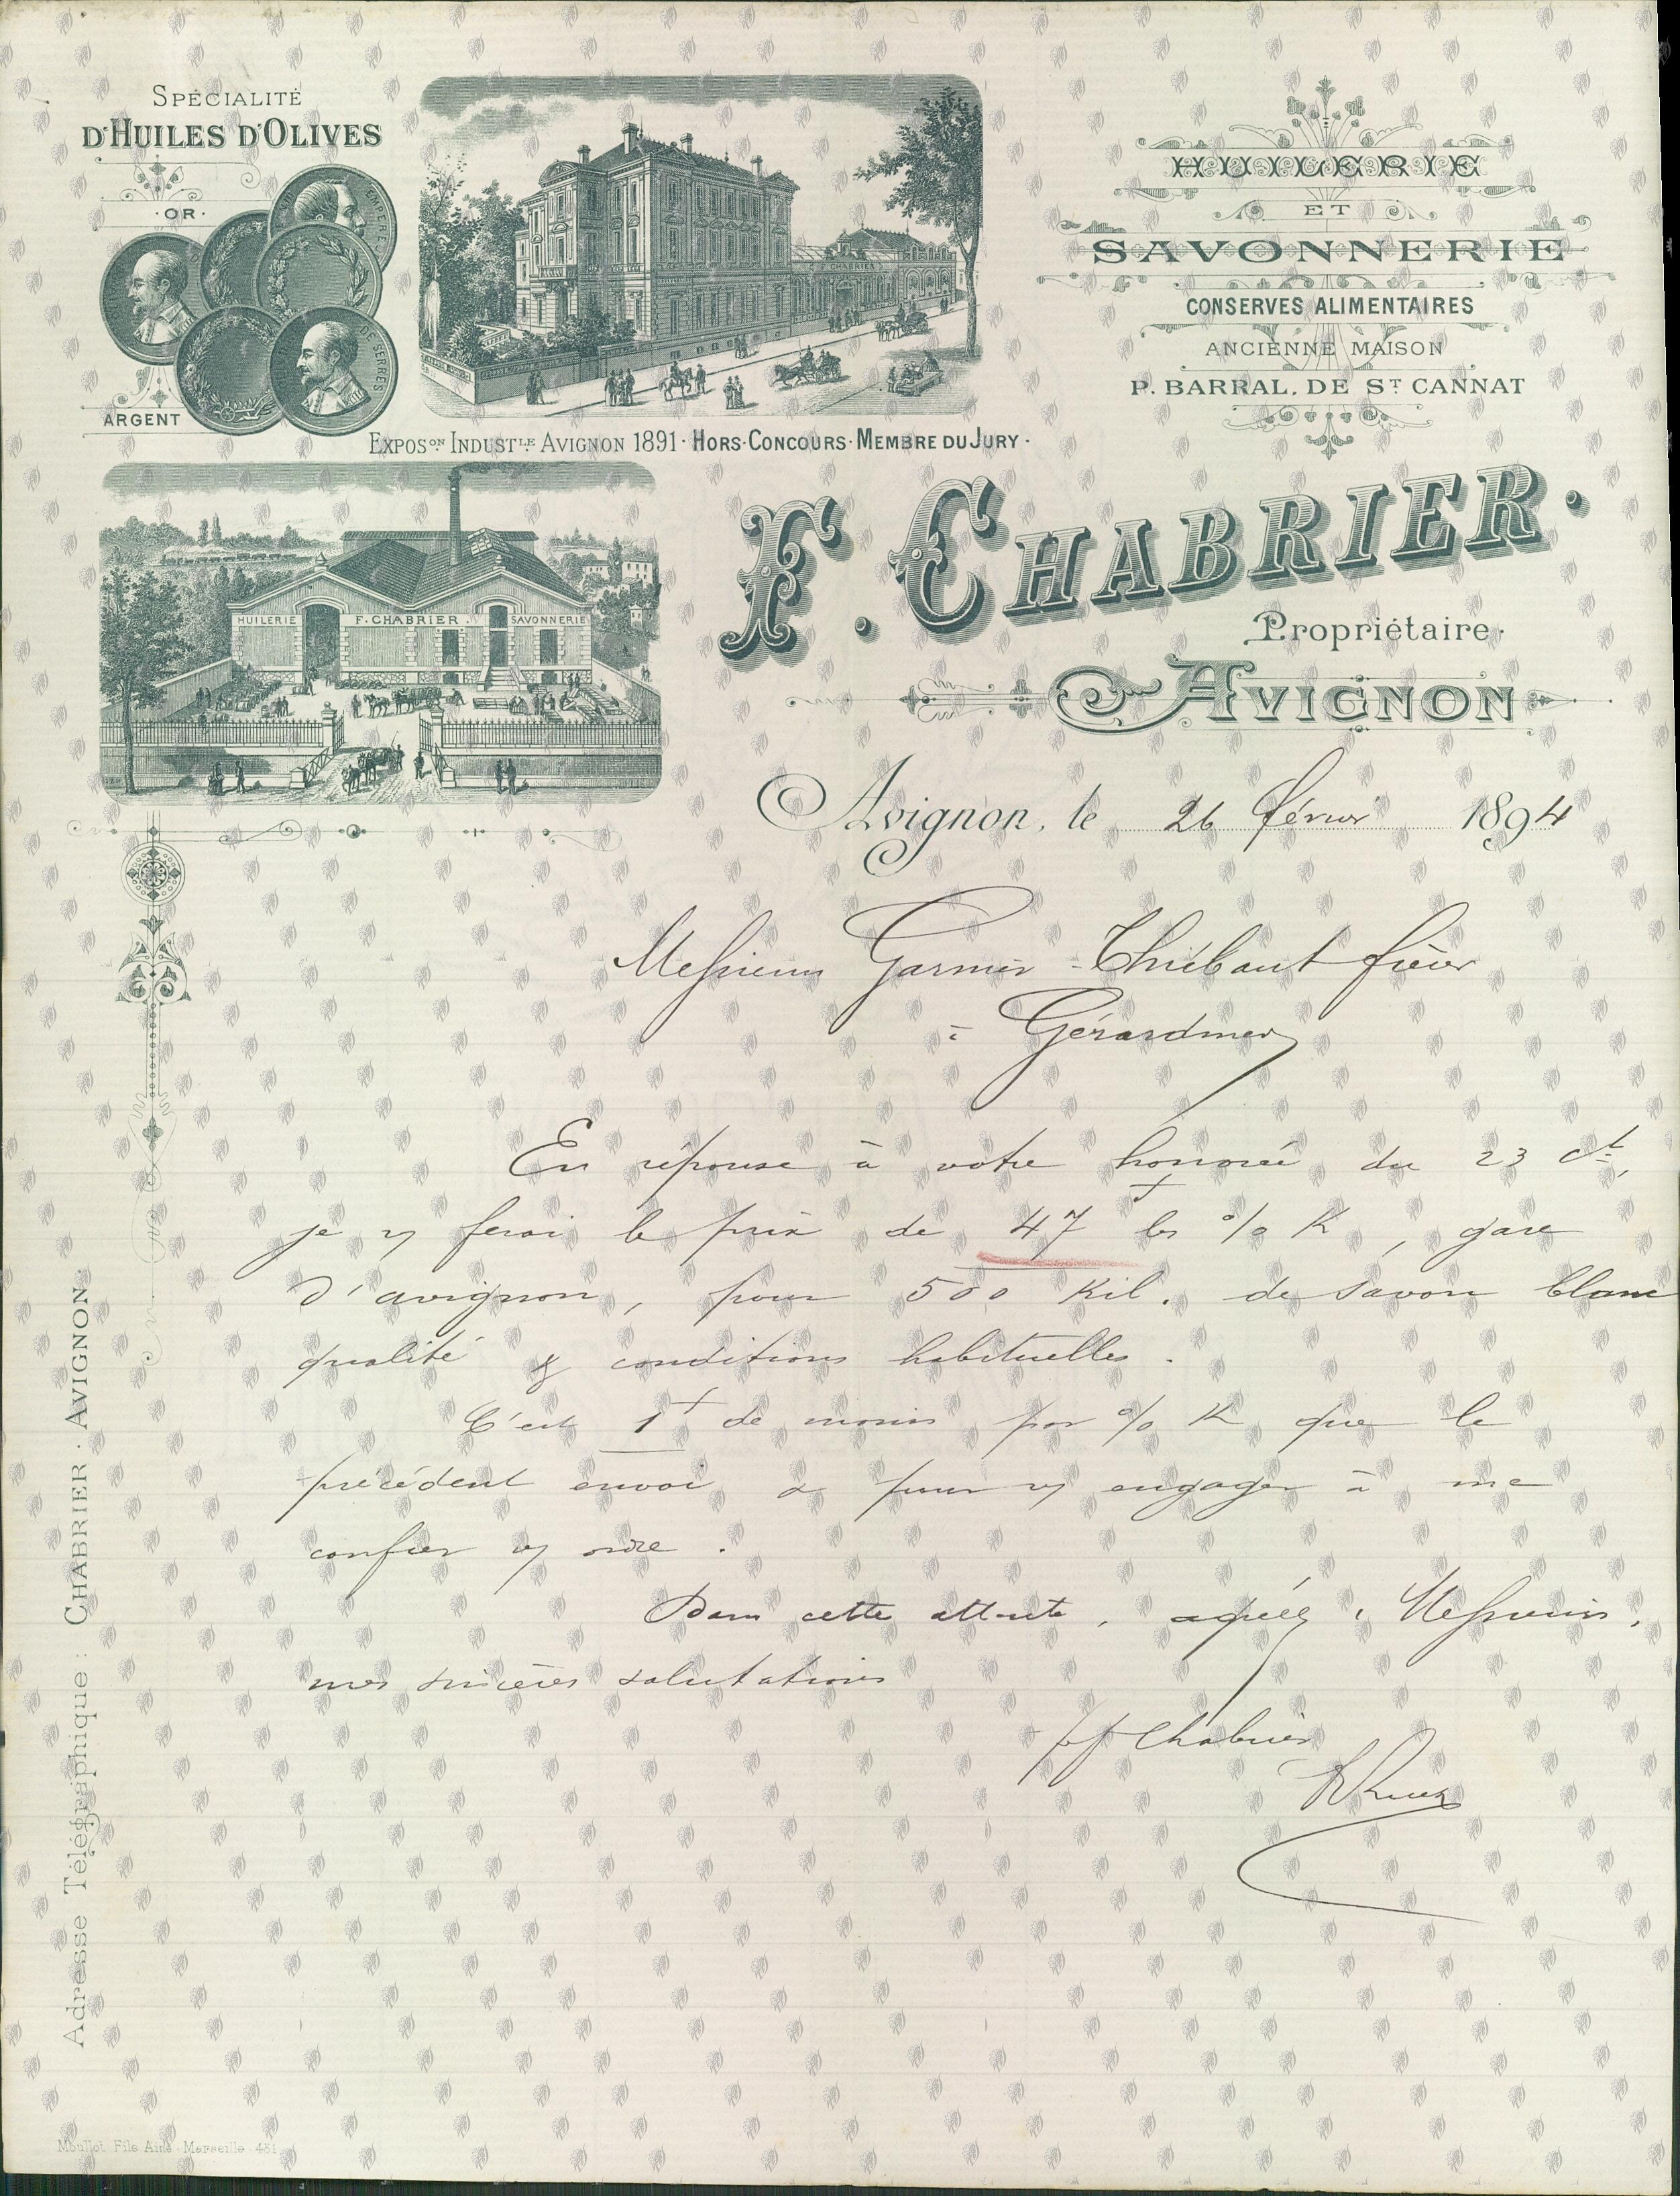 SPÉCIALITÉ
D'HUILES D'OLIVES
OR
ARGENT
DE SERRES
F. CHABRIER
HUILERIE
ET
SAVONNERIE
CONSERVES ALIMENTAIRES
ANCIENNE MAISON
P. BARRAL, DE ST CANNAT
EXPOSON INDUSTLE AVIGNON 1891 · HORS-CONCOURS · MEMBRE DU JURY ·
HUILERIE F. CHABRIER SAVONNERIE
F. CHABRIER.
Propriétaire
AVIGNON
Avignon, le 26 février 1894
Messieurs Garnier-Thiébaut frères
à Gérardmer
En réponse à votre honorée du 23 ct,
je vs ferai le prix de 47 f les % K, gare
d'avignon, pour 500 Kil. de savon blanc
qualité & conditions habituelles.
C'est 1 f de moins par % K que le
précédent envoi & pour vs engager à me
confier vs ordre.
Dans cette attente, agréez, Messieurs,
mes sincères salutations
pp Chabrier
Adresse Télégraphique : CHABRIER · AVIGNON.
Moullot Fils Ainé Marseille 451